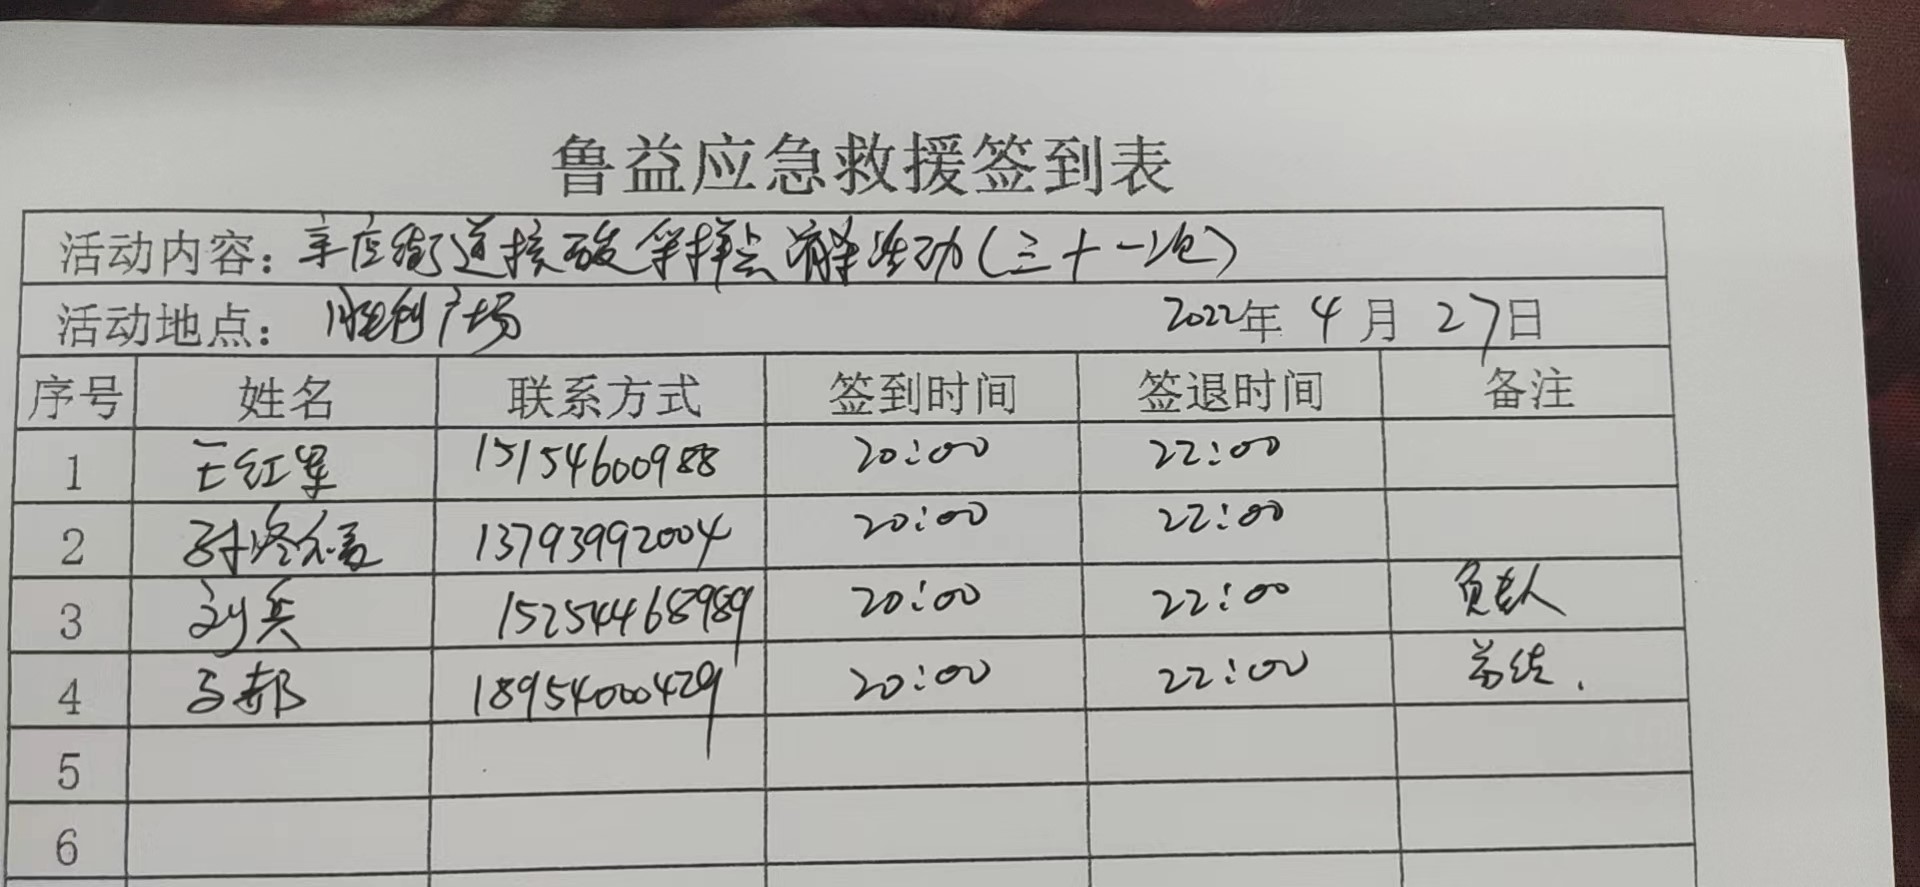 鲁益应急救援签到表
活动内容：辛店街道核酸采样点消杀活动（三十一次）
活动地点：胜利广场 2022年 4月 27日
序号 姓名 联系方式 签到时间 签退时间 备注
1 王红军 15154600988 20:00 22:00
2 13793992004 20:00 22:00
3 刘兵 15254468989 20:00 22:00 负责人
4 马郝 18954000429 20:00 22:00 总结.
5
6